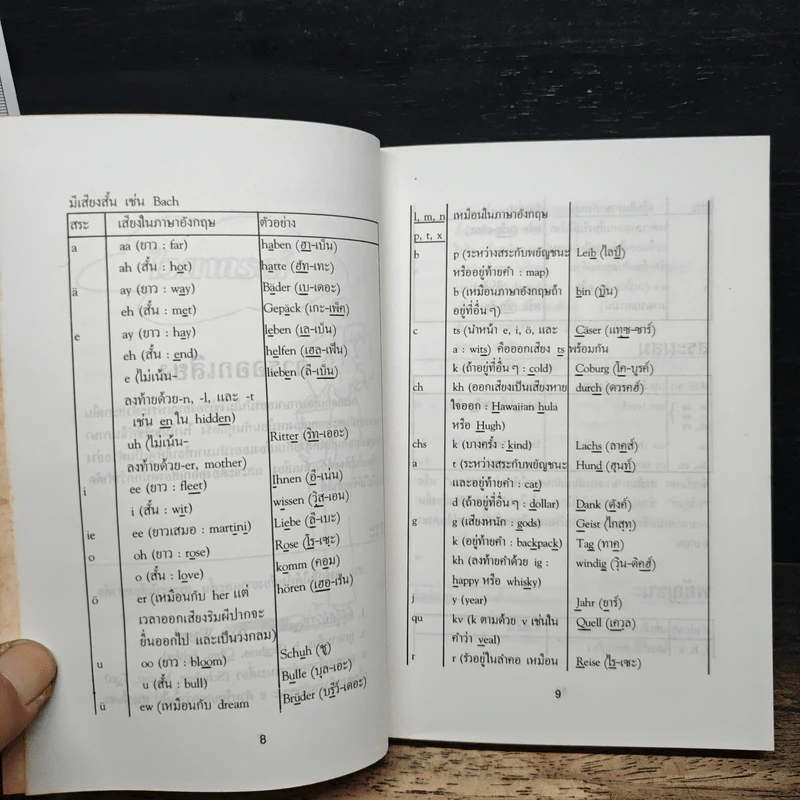 มีเสียงสั้น เช่น Bach
สระ เสียงในภาษาอังกฤษ ตัวอย่าง
a aa (ยาว : far) haben (ฮา-เบ็น)
ah (สั้น : hot) hatte (ฮัท-เทะ)
ä ay (ยาว : way) Bäder (เบ-เดอะ)
eh (สั้น : met) Gepäck (เกะ-เพ็ค)
e ay (ยาว : hay) leben (เล-เบ็น)
eh (สั้น : end) helfen (เฮล-เฟ็น)
e (ไม่เน้น- lieben (ลี-เบ็น)
ลงท้ายด้วย-n, -l, และ -t
เช่น en ใน hidden)
uh (ไม่เน้น- Ritter (ริท-เออะ)
ลงท้ายด้วย-er, mother)
i ee (ยาว : fleet) Ihnen (อี-เน่น)
i (สั้น : wit) wissen (วิส-เอน)
ie ee (ยาวเสมอ : martini) Liebe (ลี-เบะ)
o oh (ยาว : rose) Rose (โร-เซะ)
o (สั้น : love) komm (คอม)
ö er (เหมือนกับ her แต่ hören (เฮอ-เร็น)
เวลาออกเสียงริมฝีปากจะ
ยื่นออกไป และเป็นวงกลม)
u oo (ยาว : bloom) Schuh (ชู)
u (สั้น : bull) Bulle (บุล-เอะ)
ü ew (เหมือนกับ dream Brüder (บรูีว์-เดอะ)
8
l, m, n เหมือนในภาษาอังกฤษ
p, t, x
b p (ระหว่างสระกับพยัญชนะ Leib (ไลป์)
หรืออยู่ท้ายคำ : map)
b (เหมือนภาษาอังกฤษถ้า bin (บิน)
อยู่ที่อื่น ๆ)
c ts (นำหน้า e, i, ö, และ Cäser (แทซ-ซาร์)
a : wits) คือออกเสียง ts พร้อมกัน
k (ถ้าอยู่ที่อื่น ๆ : cold) Coburg (โค-บูรค์)
ch kh (ออกเสียงเป็นเสียงหาย durch (ดวรคฮ์)
ใจออก : Hawaiian hula
หรือ Hugh)
chs k (บางครั้ง : kind) Lachs (ลาคส์)
a t (ระหว่างสระกับพยัญชนะ Hund (ฮุนท์)
และอยู่ท้ายคำ : cat)
d (ถ้าอยู่ที่อื่น ๆ : dollar) Dank (ดังค์)
g g (เสียงหนัก : gods) Geist (ไกสท)
k (อยู่ท้ายคำ : backpack) Tag (ทาค)
kh (ลงท้ายคำด้วย ig : windig (วิน-ดิคฮ์)
happy หรือ whisky)
j y (year) Jahr (ยาร์)
qu kv (k ตามด้วย v เช่นใน Quell (เควล)
คำว่า veal)
r r (รัวอยู่ในลำคอ เหมือน Reise (ไร-เซะ)
9